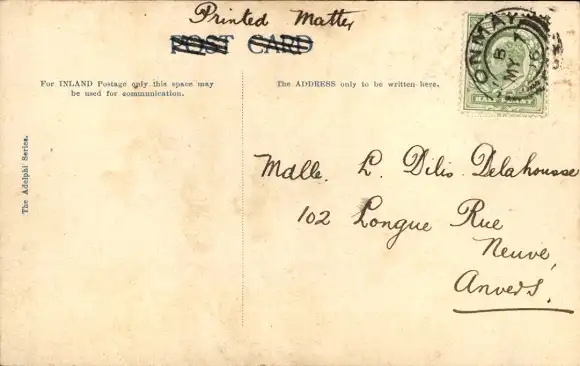 Printed Matter
POST CARD
For INLAND Postage only this space may
be used for communication.
The ADDRESS only to be written here.
The Adelphi Series.
HALF PENNY
Mdlle. L. Dilis Delahousse
102 Longue Rue
Neuve,
Anvers.